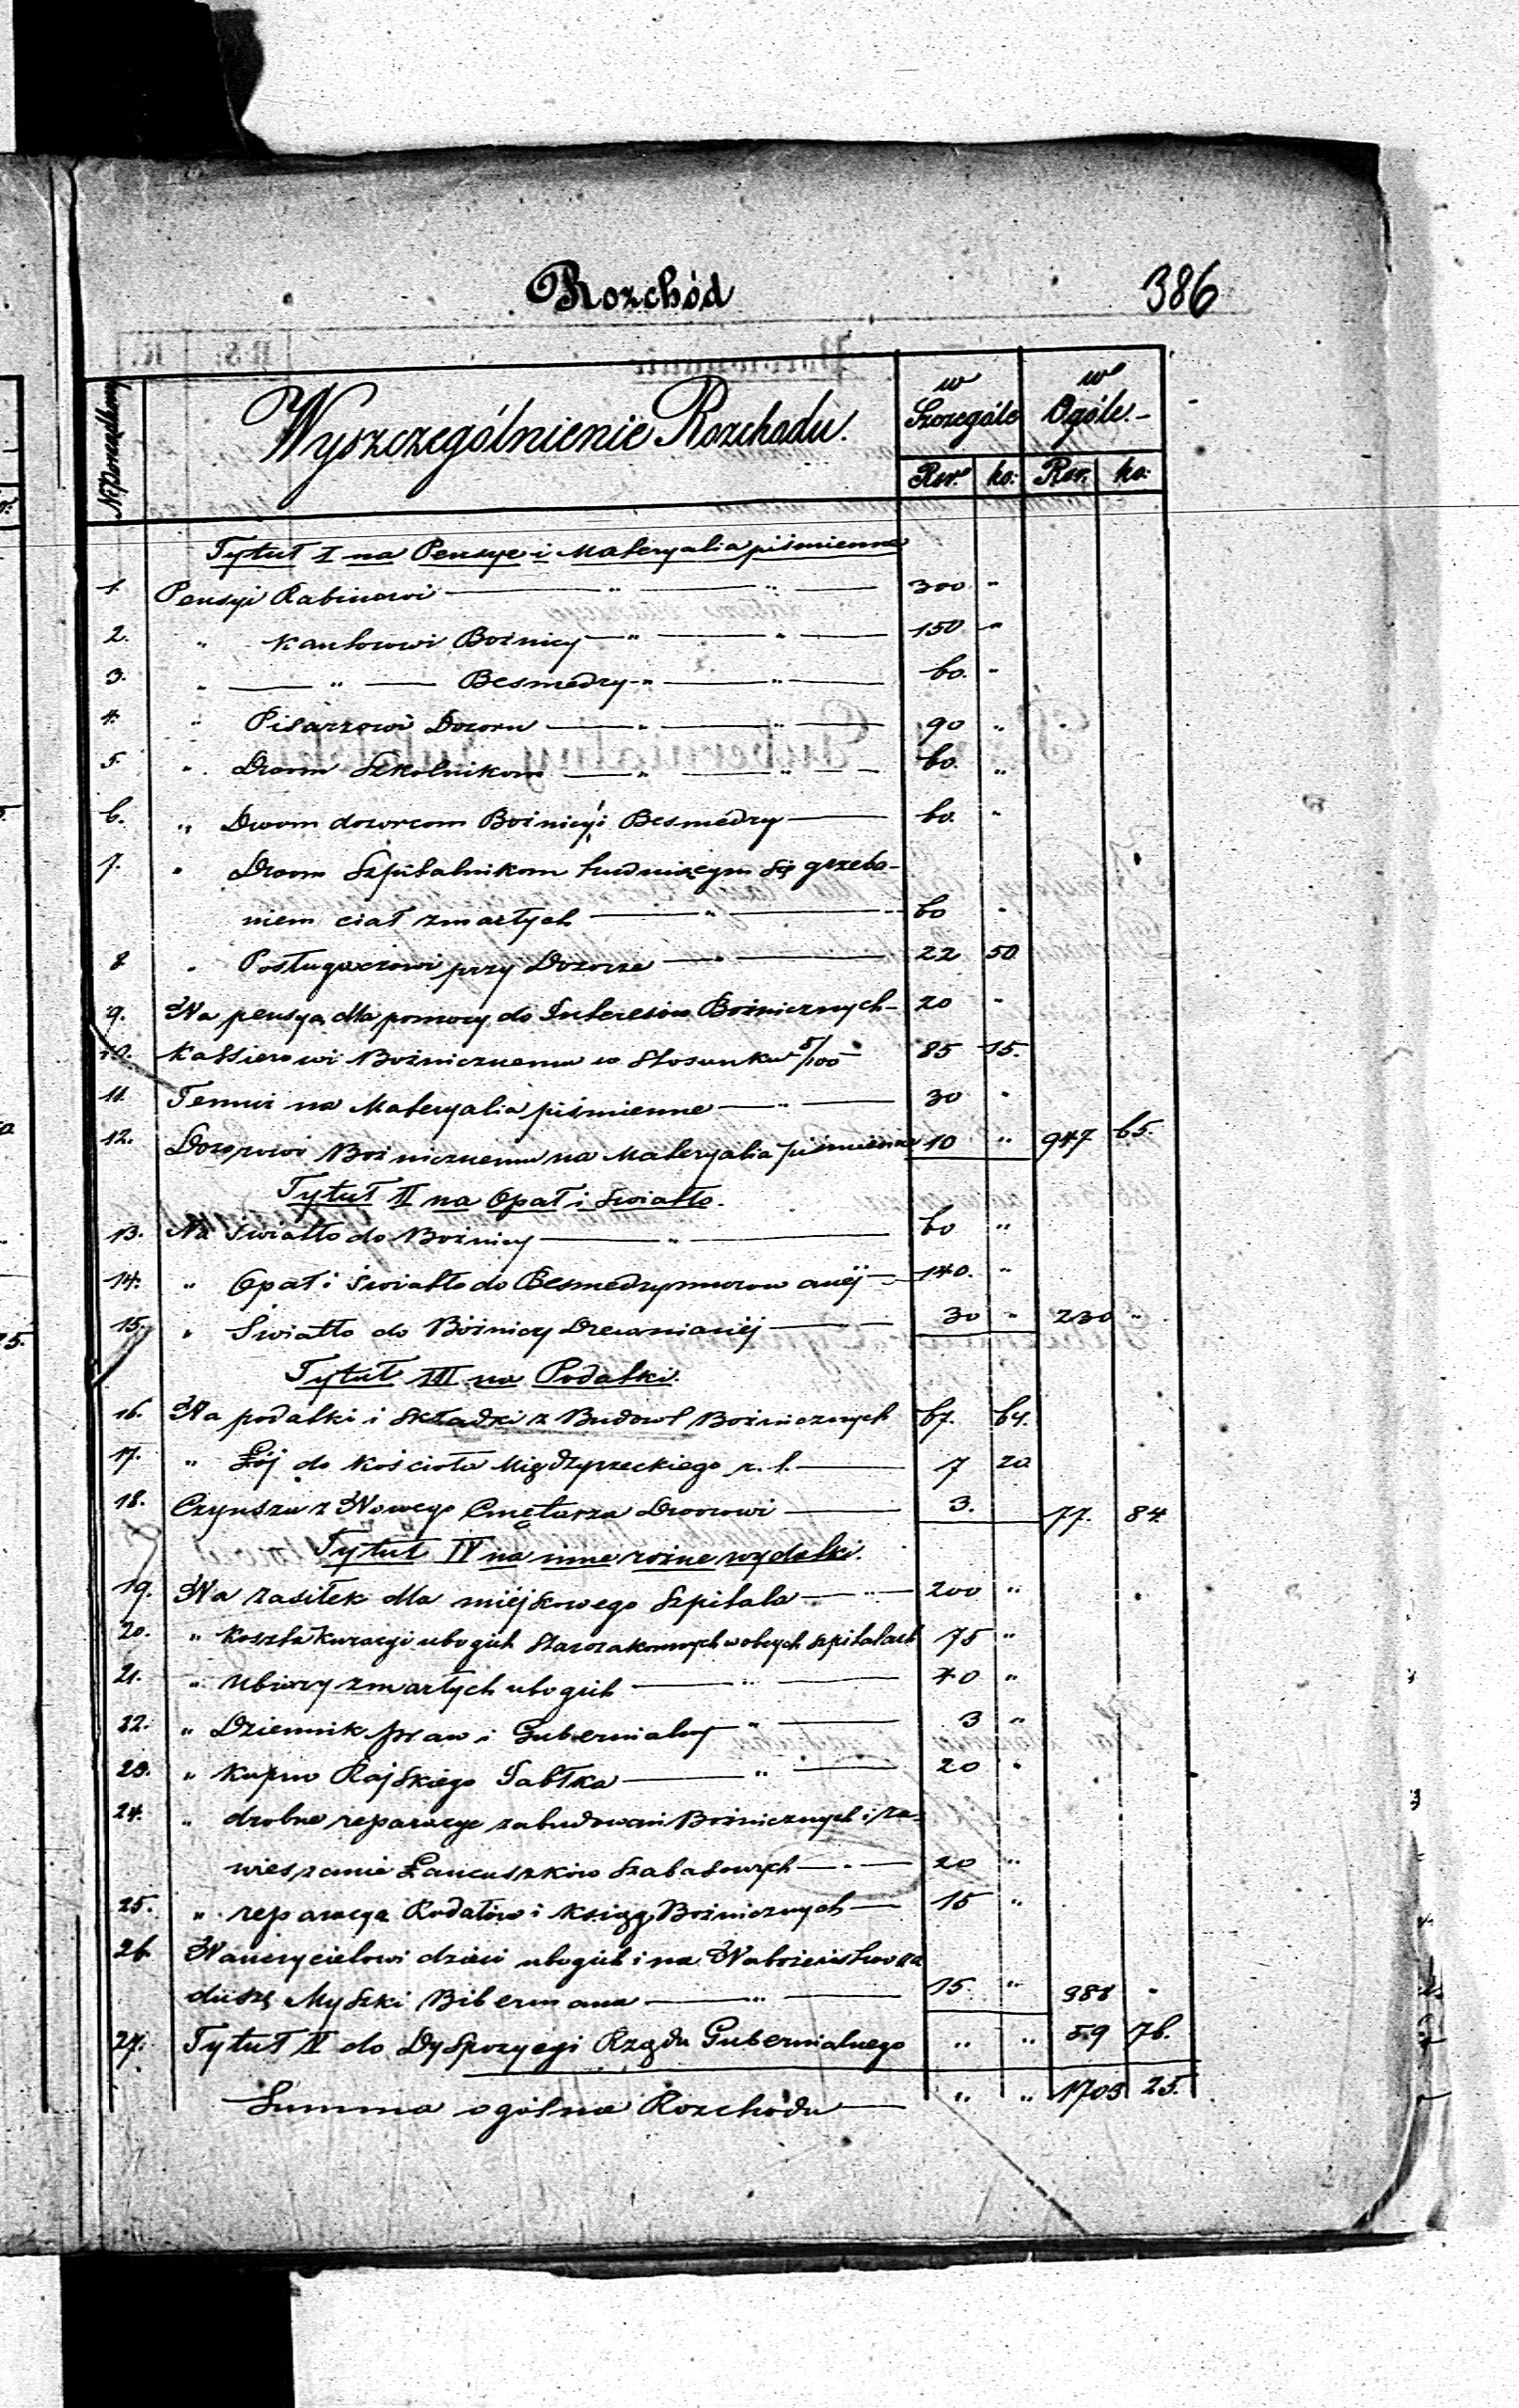 Rozchód
386
№ Porządkowy
Wyszczególnienie Rozchodu.
w Szczególe
w Ogóle.-
Rsr. ko: Rsr. ko:
Tytuł I na Pensye i Materyalia piśmienne
1. Pensyi Rabinowi — " — 300 "
2. " Kantorowi Bożnicy — " — " — 150 "
3. " — " — Besmedry " — " — 60. "
4. " Pisarzowi Dozoru — " — " — 90 "
5. " Dwom Szkolnikom — " — " — 60. "
6. " Dwom dozorcom Bożnicy i Besmedry — 60. "
7. " Dwom Szpitalnikom trudniącym się grzeba-
niem ciał zmarłych — " — 60 "
8 " Posługaczowi przy Dozorze — " — 22 50
9. Na pensyą dla pomocy do Interesów Bożnicznych - 20 "
10. Kassierowi Bożnicznemu w Stosunku 5/100 85 15.
11. Temuż na Materyalia piśmienne — " — 30 "
12. Dozorowi Bożnicznemu na Materyalia piśmienne 10 " 947 65.
Tytuł II na Opał i Swiatło.
13. Na Swiatło do Bożnicy — " — 60 "
14. " Opał i Swiatło do Besmedry murowanéj — 140. "
15. " Swiatło do Bóżnicy Drewnianéj — 30 " 230 "
Tytuł III na Podatki.
16. Na podatki i składki z Budowl Bożnicznych 67. 64.
17. " Łój do Kościoła Międzyrzeckiego r. l. — 7 20
18. Czynszu z Nowego Cmętarza Dworowi — 3. 77. 84
Tytuł IV na inne rożne wydatki.
19. Na zasiłek dla miéjscowego Szpitala — " — 200 "
20. " Koszta Kuracyi ubogich Starozakonnych w obcych szpitalach 75 "
21. " Ubiory zmarłych ubogich — " — 40 "
22. " Dziennik praw i Gubernialny — " — 3 "
23. " Kupno Rajskiego Jabłka — " — 20 "
24. " drobne reparacye zabudowań Bożnicznych i za-
wieszanie Łancuszków Szabasowych — " — 20 "
25. " reparacyą Rodałów i Ksiąg Bożnicznych — 15 "
26 Nauczycielowi dzieci ubogich i na Nabożeństwo za
duszę Myszki Bibermana — " — 15. " 388 "
27. Tytuł V do Dyspozycyi Rządu Gubernialnego " " 59 76.
Summa ogólna Rozchodu — " " 1703 25.